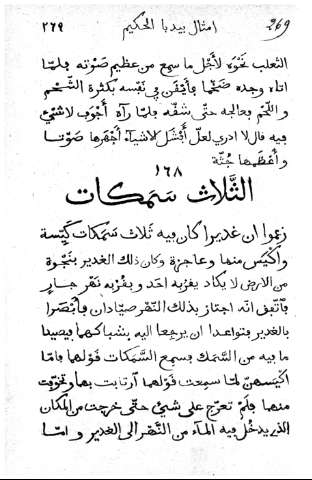 ٢٦٩ امثال بيدبا الحكيم 269
الثعلب نَحْوَهُ لأَجْل ما سمع من عظيم صَوْته فلمّا
اتاه وجده ضَخْمًا فأيقن في نَفْسه بكثرة الشَّحْم
واللحْم فعالجه حتّى شقّه فلمّا رآه أَجْوَف لا شيْءَ
فيه قال لا ادري لعلّ أَفْشَل لاشيآء أَجْهَرها صَوْتًا
وأَعْظمها جُثّة
١٦٨
الثَّلاث سَمَكات
زعموا ان غديرا كان فيه ثلاث سَمَكات كَيّسة
واكْيَس منها وعاجزة وكان ذلك الغدير بنَجْوة
من الارض لا يكاد يقربه احد وبقُرْبه نَهْر جارٍ
فاتّفق انّه اجتاز بذلك النَّهْر صيّادان فأبْصَرا
بالغدير فتواعدا ان يرجعا اليه بشباكهما فيصيدا
ما فيه من السَّمَك فسمع السَّمَكات قَوْلهما فامّا
اكيسهنّ لمّا سمعت قَوْلهما ارتابت بهما وتخوّفت
منهما فلَمْ تعرّج على شيْءٍ حتّى خرجت من المكان
الذي يدخُل فيه المآء من النَّهْر الى الغدير وامّا